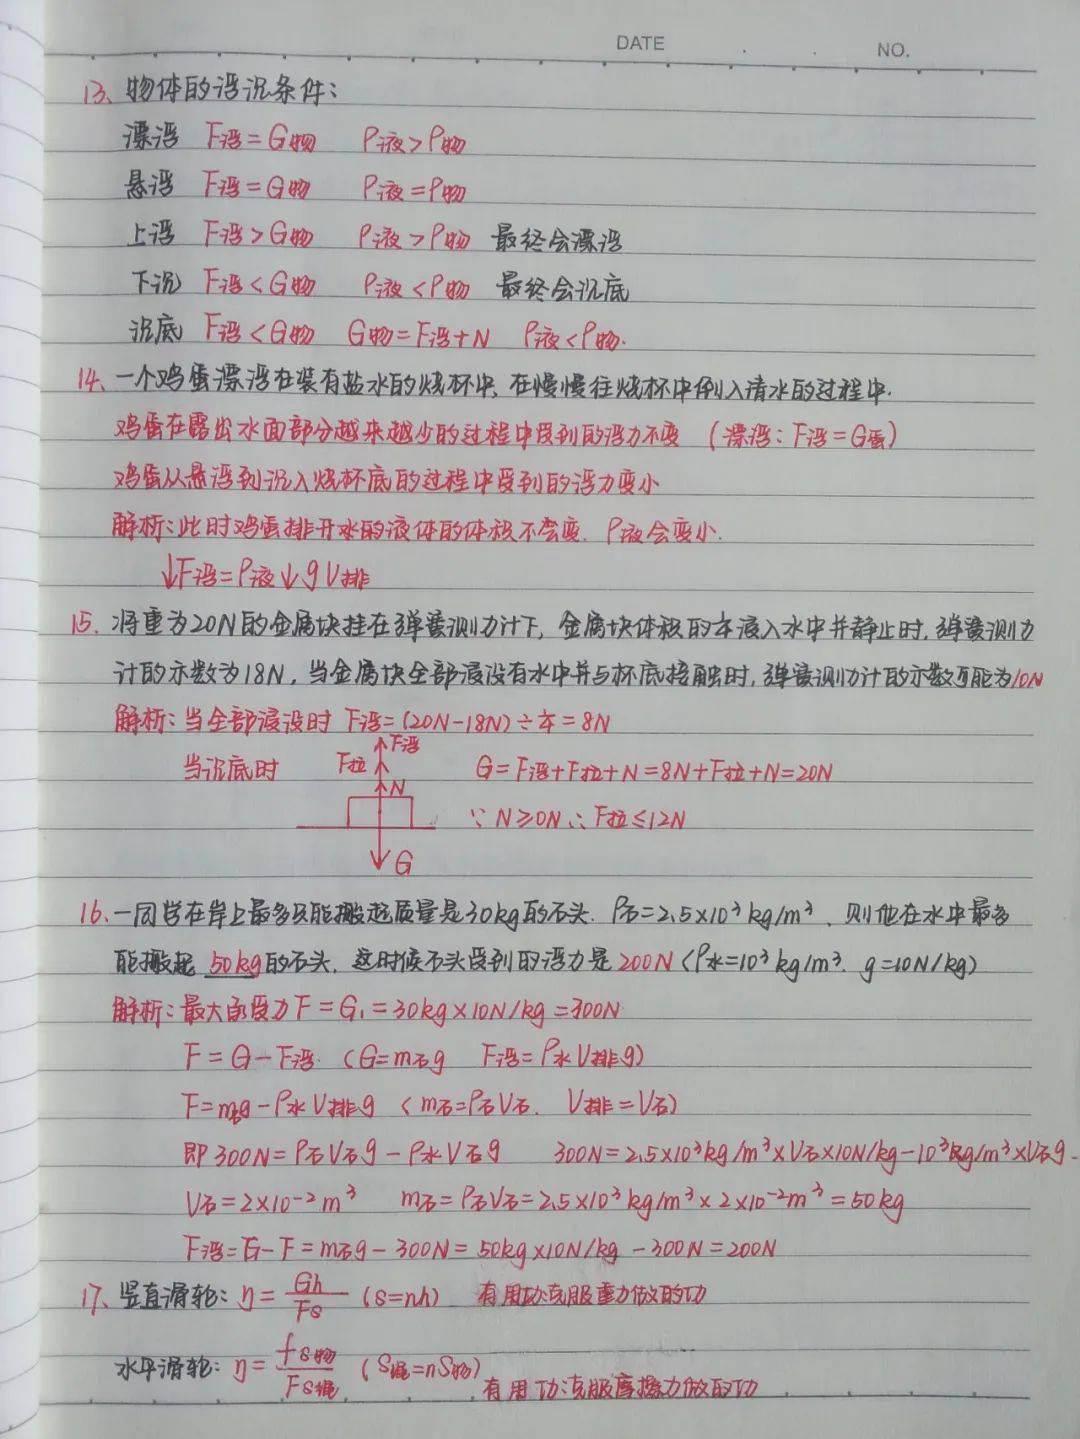 DATE . . NO.
13、物体的浮沉条件:
漂浮 F浮=G物 ρ液>ρ物
悬浮 F浮=G物 ρ液=ρ物
上浮 F浮>G物 ρ液>ρ物 最终会漂浮
下沉 F浮<G物 ρ液<ρ物 最终会沉底
沉底 F浮<G物 G物=F浮+N ρ液<ρ物.
14、一个鸡蛋漂浮在装有盐水的烧杯中,在慢慢往烧杯中倒入清水的过程中.
鸡蛋在露出水面部分越来越少的过程中受到的浮力不变 (漂浮:F浮=G蛋)
鸡蛋从悬浮到沉入烧杯底的过程中受到的浮力变小
解析:此时鸡蛋排开水的液体的体积不会变. ρ液会变小.
↓F浮=ρ液↓gV排
15、将重为20N的金属块挂在弹簧测力计下,金属块体积的¼浸入水中并静止时,弹簧测力
计的示数为18N,当金属块全部浸没有水中并与杯底接触时,弹簧测力计的示数可能为10N
解析:当全部浸没时 F浮=(20N-18N)÷¼=8N
F浮
当沉底时 F拉 G=F浮+F拉+N=8N+F拉+N=20N
N ∵N≥0N∴F拉≤12N
G
16、一同学在岸上最多只能搬起质量是30kg的石头. ρ石=2.5×10³kg/m³,则他在水中最多
能搬起 50kg的石头,这时候石头受到的浮力是200N(ρ水=10³kg/m³. g=10N/kg)
解析:最大承受力F=G₁=30kg×10N/kg=300N
F=G-F浮.(G=m石g F浮=ρ水V排g)
F=m石g-ρ水V排g (m石=ρ石V石. V排=V石)
即300N=ρ石V石g-ρ水V石g 300N=2.5×10³kg/m³×V石×10N/kg-10³kg/m³×V石g.
V石=2×10⁻²m³ m石=ρ石V石=2.5×10³kg/m³×2×10⁻²m³=50kg
F浮=G-F=m石g-300N=50kg×10N/kg-300N=200N
17、竖直滑轮:η=Gh/Fs (s=nh) 有用功克服重力做的功
水平滑轮:η=fs物/Fs绳 (S绳=nS物) 有用功:克服摩擦力做的功